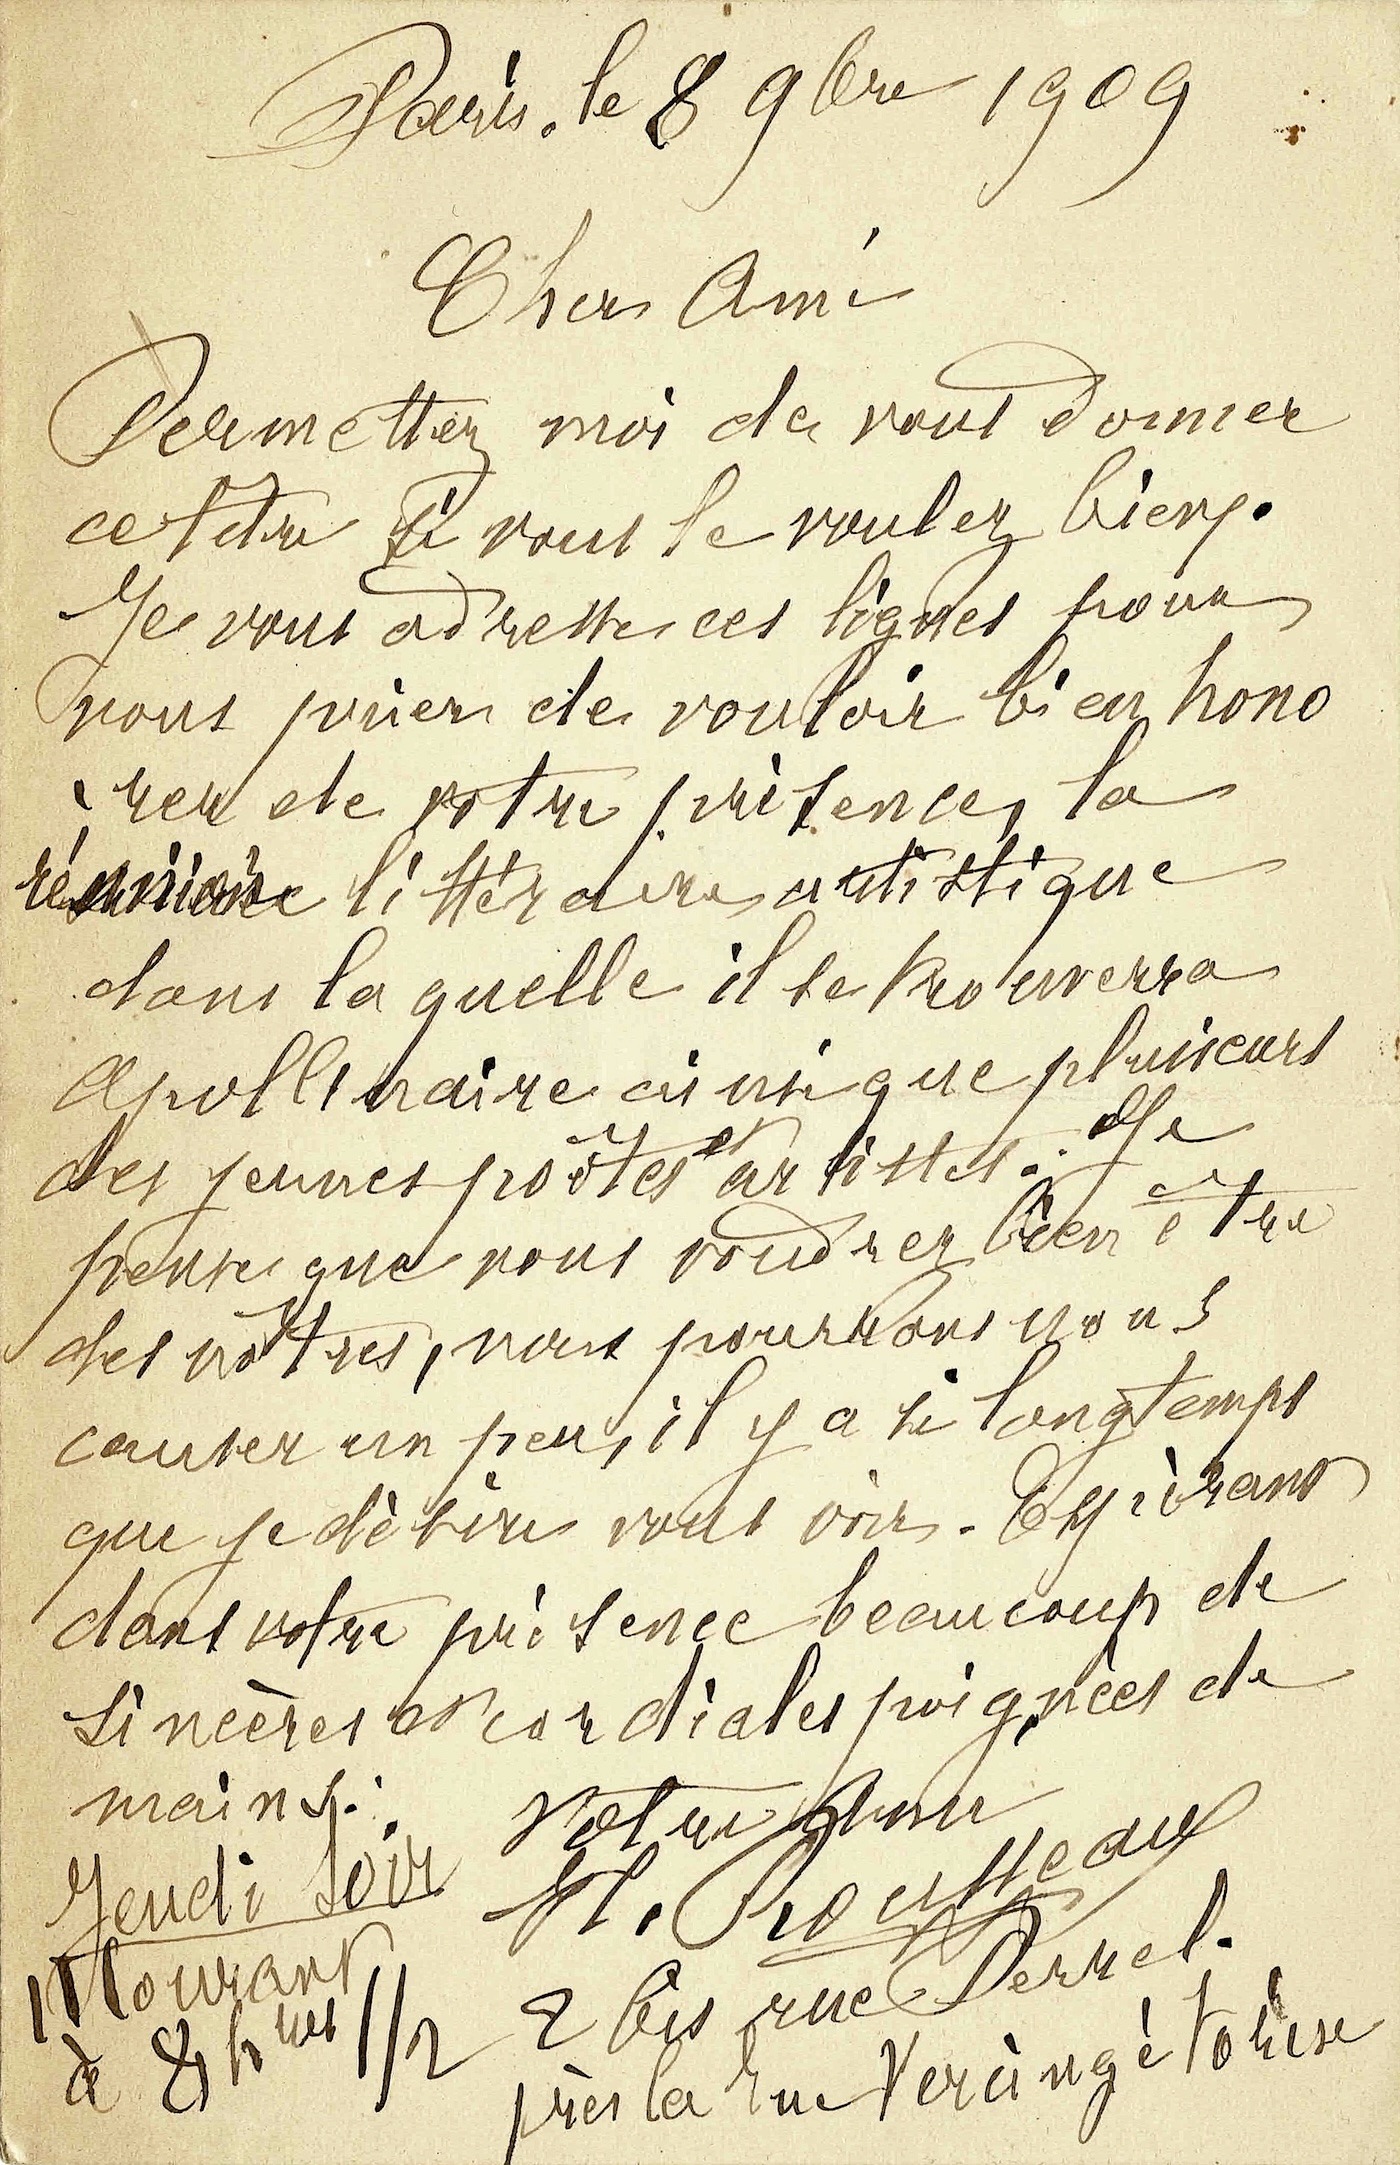 Paris. le 8 9bre 1909
Cher Ami
Permettez moi de vous donner
ce titre si vous le voulez bien.
Je vous adresse ces lignes pour
vous prier de vouloir bien hono
rer de votre présence, la
littéraire artistique
dans laquelle il se trouverra
Apollinaire ainsi que plusieurs
des jeunes poêtes et artistes. Je
pense que vous voudrez bien être
des nôtres, nous pourrons nous
causer un peu, il y a si longtemps
que je désire vous voir. Espérant
dans votre présence beaucoup de
sincères et cordiales poignées de
mains. Votre Ami
H. Rousseau
2 bis rue Perrel.
près la rue Vercingétorise
Jeudi Soir
11 Courant
à 8 hres 1/2